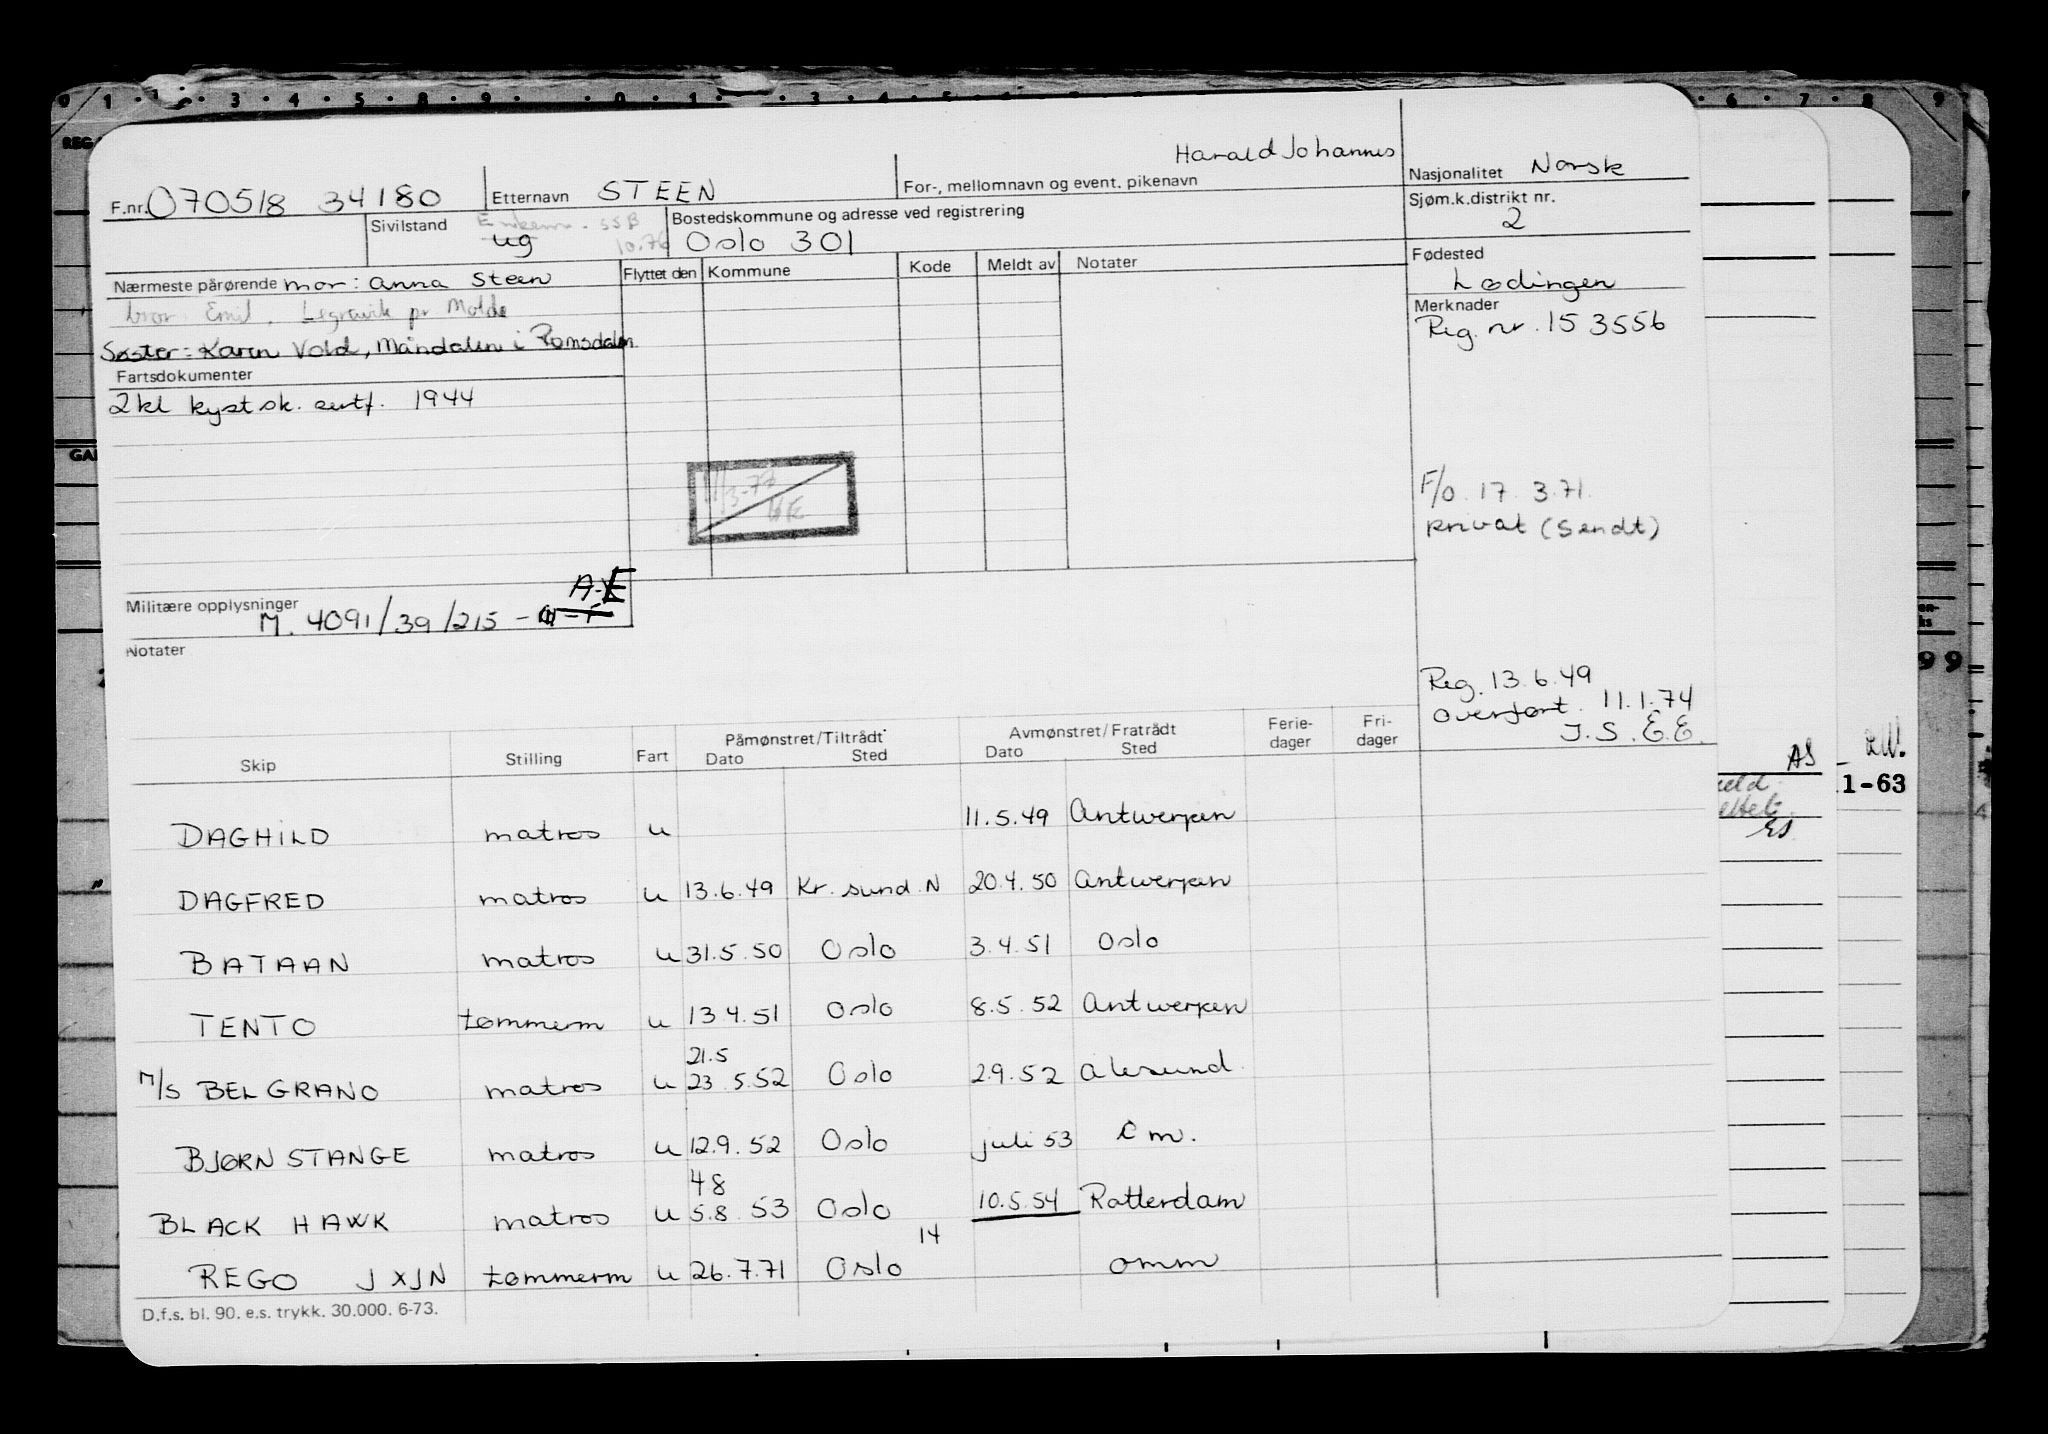 Harald Johannes
F.nr. 070518 34180 Etternavn STEEN For-, mellomnavn og event. pikenavn Nasjonalitet Norsk
Sivilstand ug Bostedskommune og adresse ved registrering Sjøm.k.distrikt nr. 2
10.76 Oslo 301
Nærmeste pårørende mor: Anna Steen Flyttet den Kommune Kode Meldt av Notater Fødested
Lødingen
bror Emil, pr Molde Merknader
Reg. nr. 153556
Søster: Karen Vold, Måndalen i Romsdalen
Fartsdokumenter
2kl kystsk. sertf. 1944
11/3-77
F/O. 17. 3.71.
privat (sendt)
Militære opplysninger A-E
M. 4091/39/215 -
Notater
Reg. 13.6.49
overført. 11.1.74
J.S.E.E.
Skip Stilling Fart Påmønstret/Tiltrådt Avmønstret/Fratrådt Ferie-dager Fri-dager
Dato Sted Dato Sted
DAGHILD matros u 11.5.49 Antwerpen
DAGFRED matros u 13.6.49 Kr.sund N 20.4.50 Antwerpen
BATAAN matros u 31.5.50 Oslo 3.4.51 Oslo
TENTO tømmerm u 13.4.51 Oslo 8.5.52 Antwerpen
21.5
M/S BELGRANO matros u 23.5.52 Oslo 2.9.52 Ålesund
BJØRN STANGE matros u 12.9.52 Oslo juli 53 m.
48
BLACK HAWK matros u 5.8.53 Oslo 10.5.54 Rotterdam
14
REGO JXJN tømmerm u 26.7.71 Oslo omm
D.f.s. bl. 90. e.s. trykk. 30.000. 6-73.
AS
1-63
99